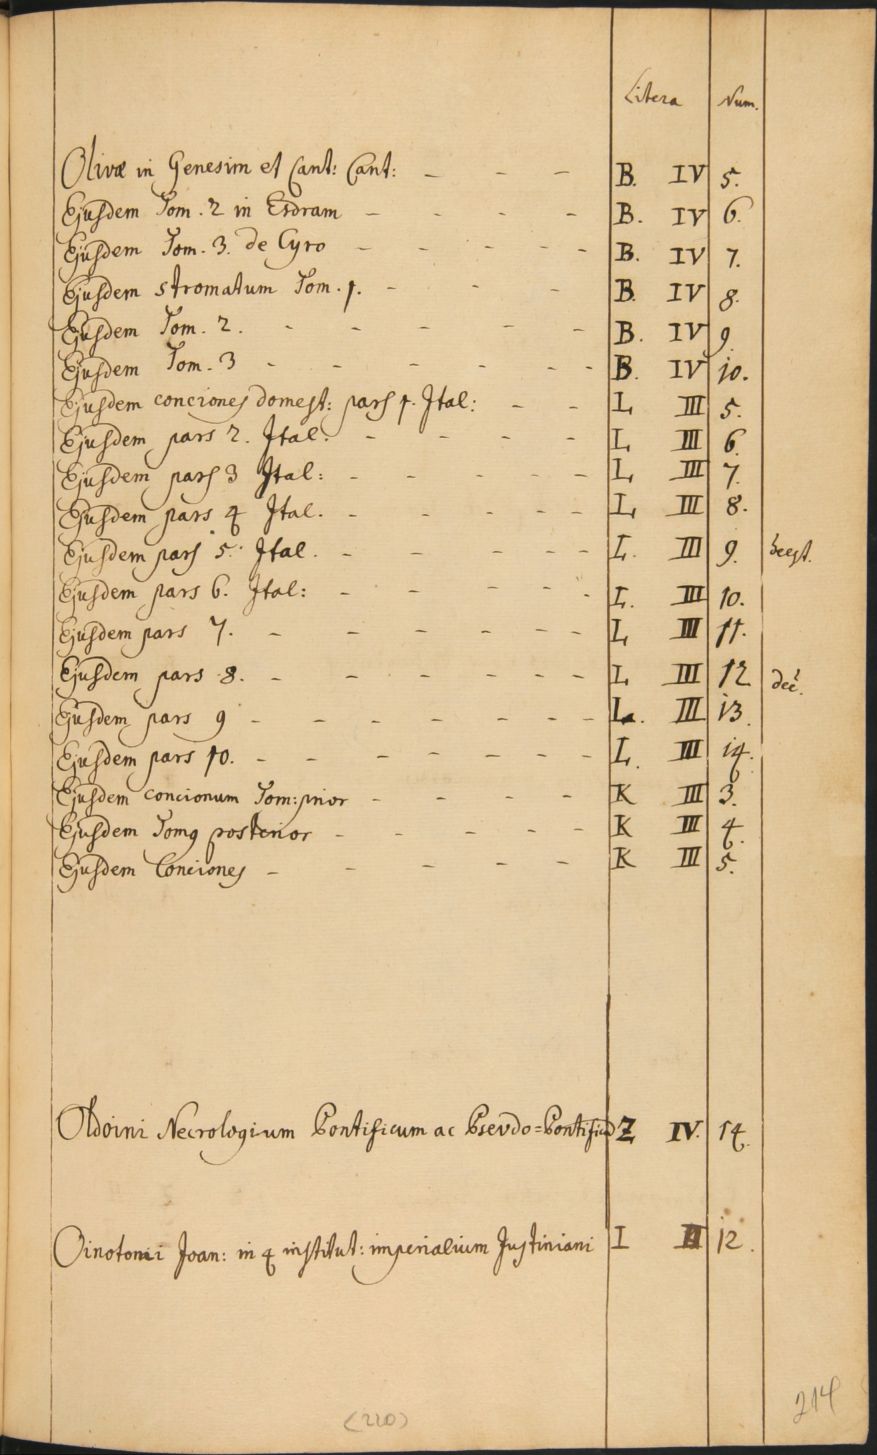 Litera Num.
Olivæ in Genesim et Cant: Cant: - - - B. IV 5.
Ejusdem Tom. 2 in Esdram - - - - B. IV 6.
Ejusdem Tom. 3. de Cyro - - - - - B. IV 7.
Ejusdem stromatum Tom. 1. - - - B. IV 8.
Ejusdem Tom. 2. - - - - - B. IV 9.
Ejusdem Tom. 3 - - - - - - B. IV 10.
Ejusdem conciones domest: pars 1. Ital: - - L III 5.
Ejusdem pars 2. Ital: - - - - L III 6.
Ejusdem pars 3 Ital: - - - - - L III 7.
Ejusdem pars 4 Ital. - - - - - L III 8.
Ejusdem pars 5. Ital. - - - - - L. III 9.
Ejusdem pars 6. Ital: - - - - - L. III 10.
Ejusdem pars 7. - - - - - - L III 11.
Ejusdem pars 8. - - - - - - L III 12 deé.
Ejusdem pars 9 - - - - - - - L. III 13.
Ejusdem pars 10. - - - - - - L. III 14.
Ejusdem concionum Tom: prior - - - - K III 3.
Ejusdem Tomq posterior - - - - - K III 4.
Ejusdem Conciones - - - - - K III 5.
Oldoini Necrologium Pontificum ac Psevdo=Pontificu Z IV. 14.
Oinotomi Joan: in 4 institut: imperialium Justiniani I II 12.
(220)
214